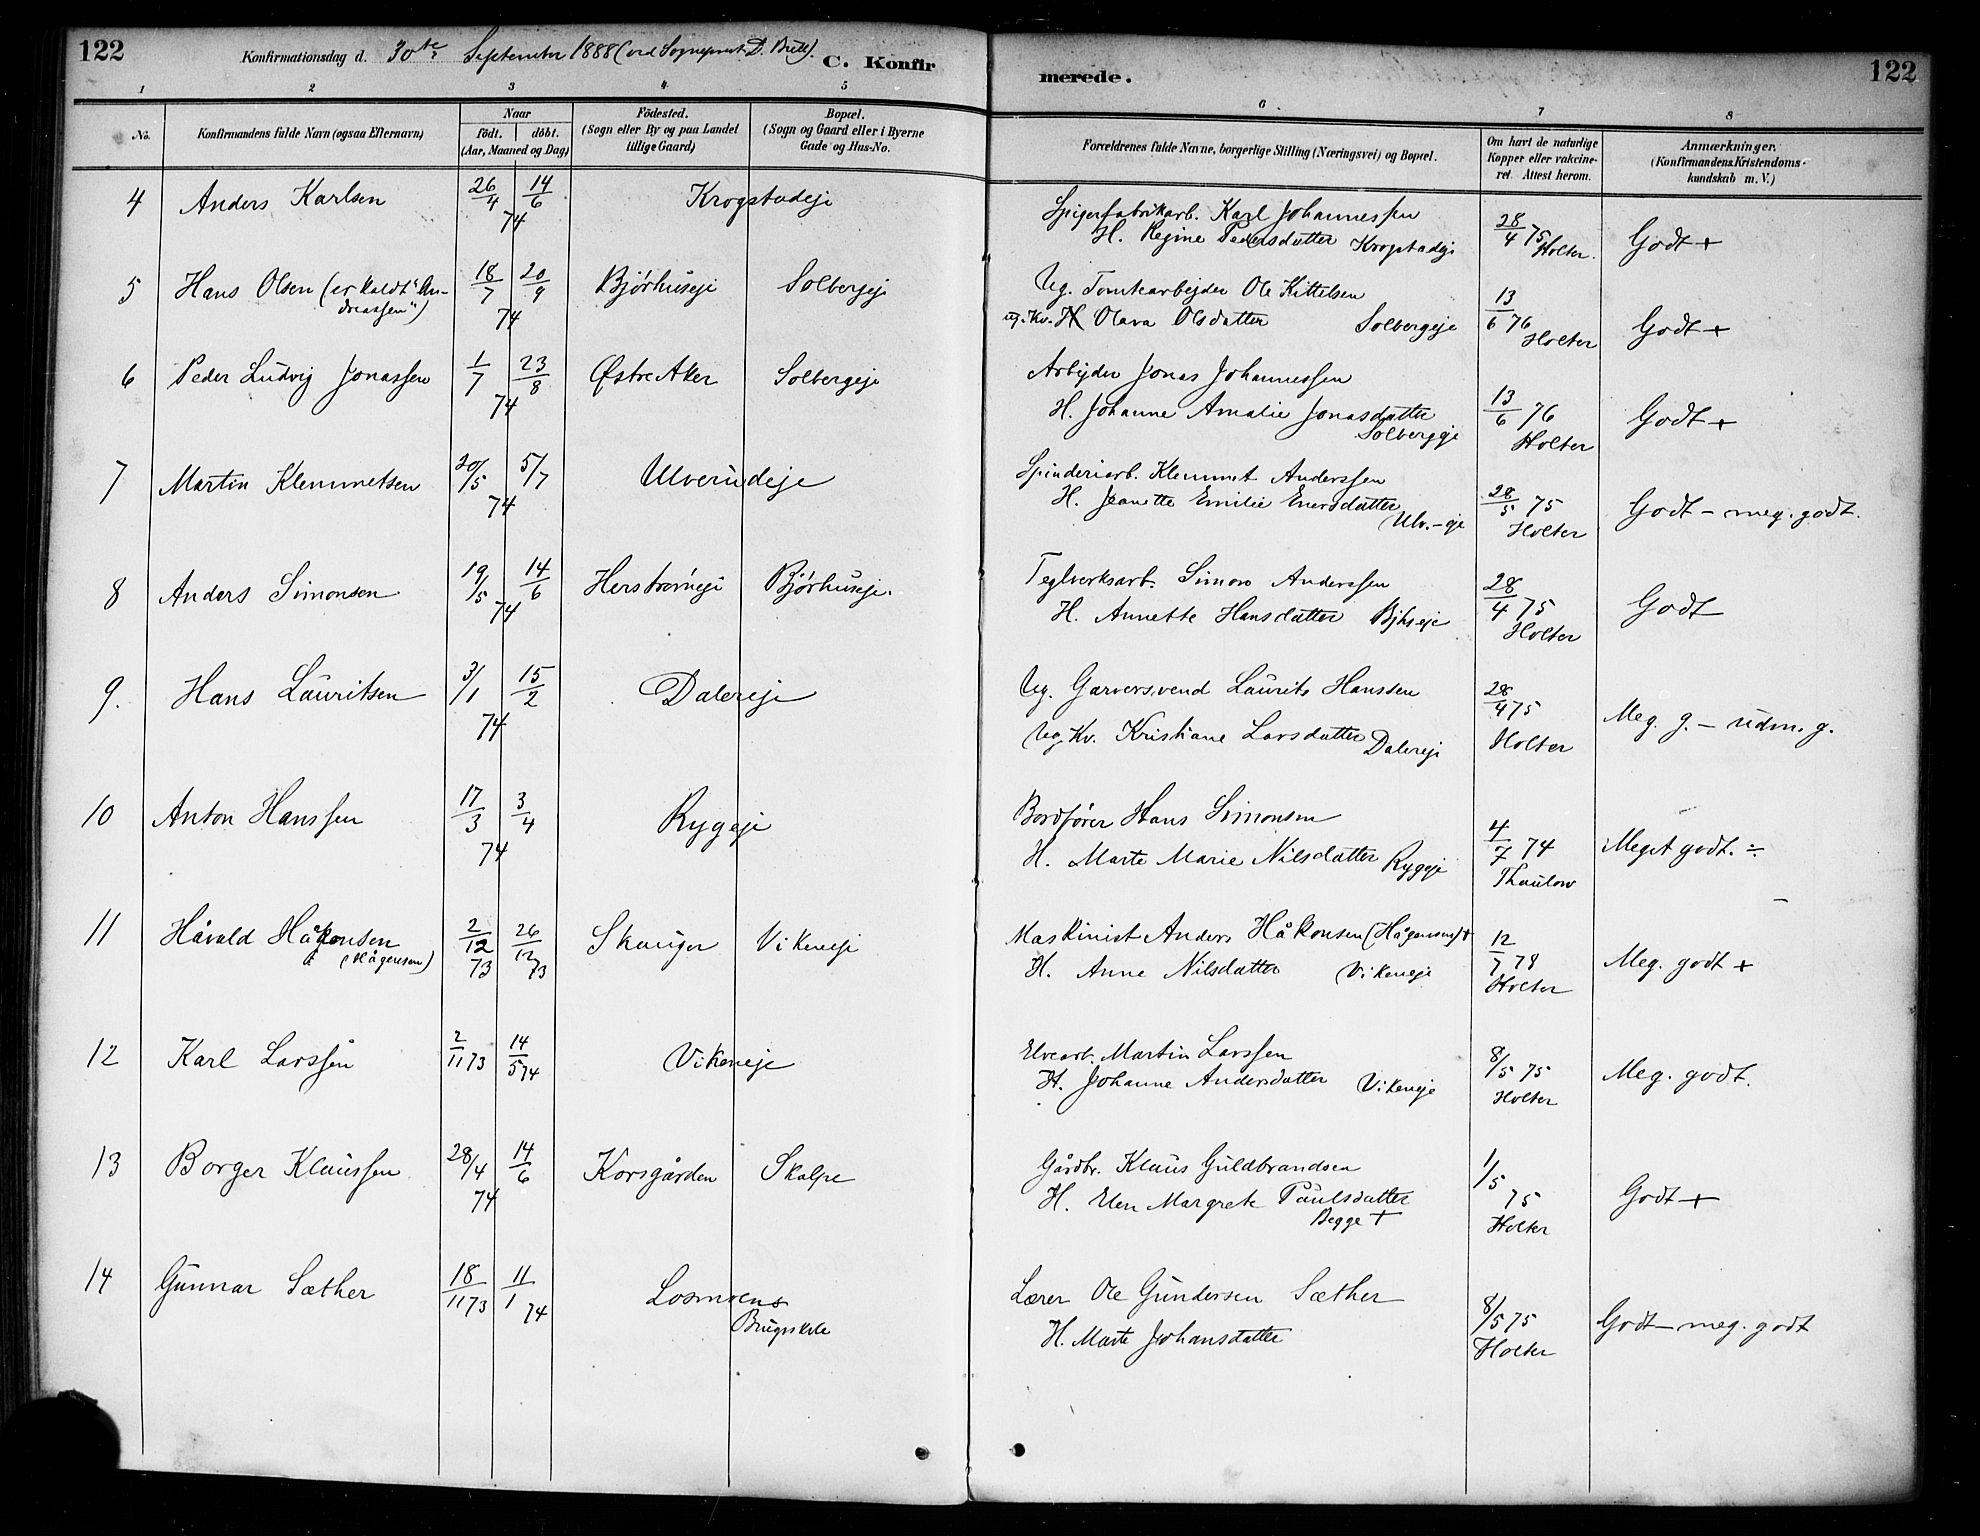 122
Konfirmationsdag d. 30te September 1888 (ved Sogneprest D. Bull).
C. Konfir
merede.
122
1 2 3 4 5 6 7 8
No.
Konfirmandens fulde Navn (ogsaa Efternavn)
Naar
födt. döbt.
(Aar, Maaned og Dag)
Födested.
(Sogn eller By og paa Landet
tillige Gaard)
Bopæl.
(Sogn og Gaard eller i Byerne
Gade og Hus-No.
Forældrenes fulde Navne, borgerlige Stilling (Næringsvei) og Bopæl.
Om havt de naturlige
Kopper eller vakcine-
ret. Attest herom.
Anmærkninger.
(Konfirmandens Kristendoms-
kundskab m. V.)
4 Anders Karlsen 26/4 14/6 74 Krogstadeje
Spigerfabrikarb. Karl Johannessen
H. Regine Pedersdatter Krogstadeje
28/4 75 Holter. Godt +
5 Hans Olsen (er kaldt "An-
dreassen") 18/7 20/9 74 Bjørhuseje Solbergeje
Ug. Tomtearbejder Ole Kittelsen
ug. Kv. H Olava Olsdatter Solbergeje
13/6 76 Holter Godt +
6 Peder Ludvig Jonassen 1/7 23/8 74 Østre Aker Solbergeje
Arbejder Jonas Johannessen
H. Johanne Amalie Jonasdatter
Solbergeje
13/6 76 Holter Godt +
7 Martin Klemmetsen 20/5 5/7 74 Ulverudeje
Spinderiarb. Klemmet Anderssen
H. Jeanette Emilie Enersdatter
Ulv.-eje
28/5 75 Holter Godt - meg. godt.
8 Anders Simonsen 19/5 14/6 74 Herstrømeje Bjørhuseje.
Teglverksarb. Simon Anderssen
H. Annette Hansdatter Bjhseje
28/4 75 Holter Godt
9. Hans Lauritsen 3/1 15/2 74 Dalereje
Ug. Garversvend Laurits Hanssen
Ug. Kv. Kristiane Larsdatter Dalereje
28/4 75 Holter Meg. g. - udm. g.
10 Anton Hanssen 17/3 3/4 74 Rygeje
Bordfører Hans Simonsen
H. Marte Marie Nilsdatter Rygeje
4/7 74 Thaulow Meget godt. ÷
11 Håvald Håkonsen
(Hågensen) 2/12 73 26/12 73 Skauger Vikeneje
Maskinist Anders Håkonsen (Hågensen) +
H. Anne Nilsdatter Vikeneje
12/7 78 Holter Meg. godt +
12 Karl Larssen 2/11 73 14/5 74 Vikeneje
Elvearb. Martin Larssen
H. Johanne Andersdatter Vikeneje
8/5 75 Holter Meg. godt.
13 Borger Klaussen 28/4 14/6 74 Korsgården Skalpe
Gårdbr. Klaus Guldbrandsen
H. Elen Margrete Paulsdatter
Begge +
1/5 75 Holter Godt +
14 Gunnar Sæther 18/11 73 11/1 74 Losmoens
Brugsskole
Lærer Ole Gundersen Sæther
H. Marte Johansdatter
8/5 75 Holter Godt - meg. godt